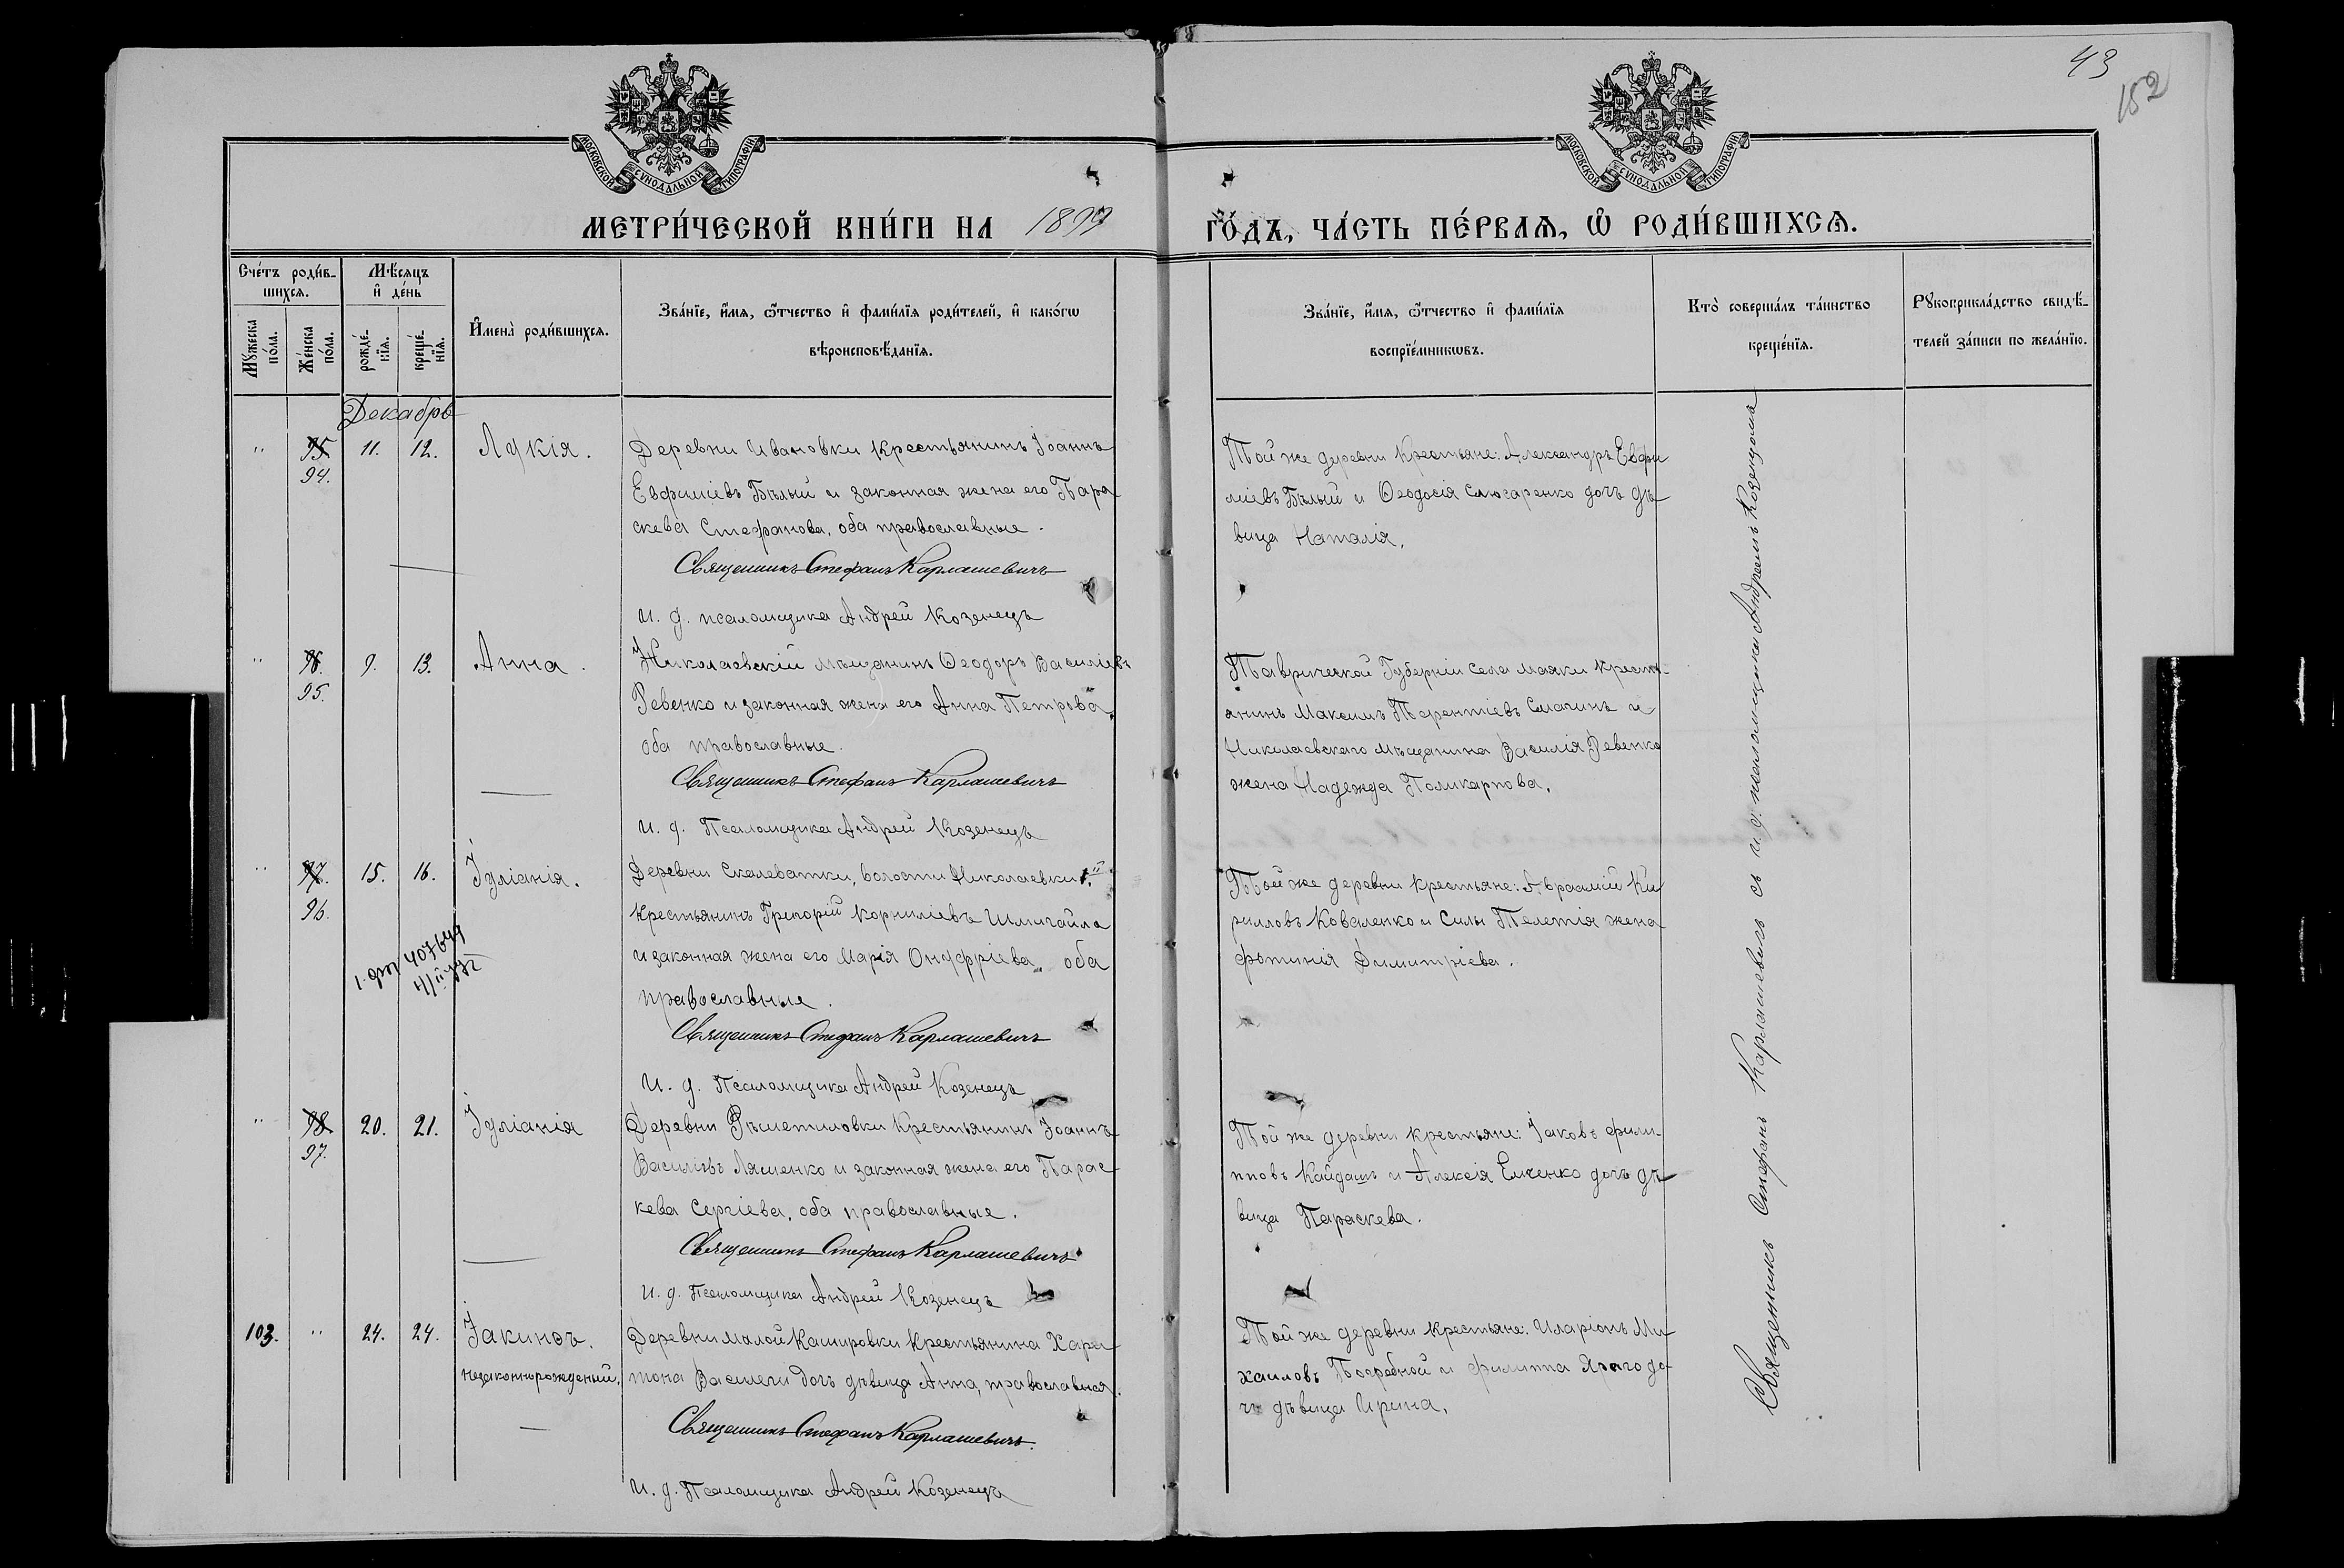 43
152
МОСКОВСКОЙ СУНОДАЛЬНОЙ ТИПОГРАФІИ
МОСКОВСКОЙ СУНОДАЛЬНОЙ ТИПОГРАФІИ
МЕТРИ́ЧЕСКОЙ КНИ́ГИ НА 1899
ГО́ДЪ, ЧА́СТЬ ПЕ́РВАѦ, Ѽ РОДИ́ВШИХСѦ.
Сче́тъ роди́в-
шихсѧ.
Мꙋжеска по́ла.
Же́нска по́ла.
Мѣ́сяцъ и҆ де́нь
рожде́-нїѧ.
креще́-нїѧ.
И҆мена̀ роди́вшихсѧ.
Зва́нїе, и҆́мѧ, ѻ҆́тчество и҆ фами́лїѧ роди́телей, и҆ како́гѡ
вѣроисповѣ́данїѧ.
Зва́нїе, и҆́мѧ, ѻ҆́тчество и҆ фами́лїѧ
воспрїе́мникѡвъ.
Кто̀ соверша́лъ та́инство
креще́нїѧ.
Рꙋкоприкла́дство свидѣ́-
телей за́писи по жела́нїю.
Декабрь
" 95 11. 12. Лукія.
94.
Деревни Ивановки крестьянинъ Іоаннъ
Евфиміевъ Бѣлый и законная жена его Пара
скева Стефанова, оба православные.
Священникъ Стефанъ Карлашевичъ
И. д. псаломщика Андрей Козенецъ
Той же деревни крестьяне: Александръ Евфи
міевъ Бѣлый и Ѳеодосія Слюсаренко дочь дѣ
вица Наталія.
" 96. 9. 13. Анна.
95.
Николаевскій мѣщанинъ Ѳеодоръ Василіевъ
Ревенко и законная жена его Анна Петрова,
оба православные.
Священникъ Стефанъ Карлашевичъ
И. д. Псаломщика Андрей Козенецъ
Таврической Губерніи села Маяки крестья-
янинъ Максимъ Терентіевъ Смагинъ и
Николаевскаго мѣщанина Василія Ревенко
жена Надежда Поликарпова.
" 97. 15. 16. Іуліанія.
96.
407649
Деревни Скалеватки, волости Николаевки
крестьянинъ Григорій Корниліевъ Шмигайло
и законная жена его Марія Онуфріева, оба
православные.
Священникъ Стефанъ Карлашевичъ
И. д. Псаломщика Андрей Козенецъ
Той же деревни крестьяне: Авраамій Ки
рилловъ Коваленко и Силы Телетія жена
Фотинія Димитріева.
" 98 20. 21. Іуліанія
97.
Деревни Рѣшетиловки крестьянинъ Іоаннъ
Василіевъ Ляшенко и законная жена его Парас
кева Сергіева, оба православные.
Священникъ Стефанъ Карлашевичъ
И. д. Псаломщика Андрей Козенецъ
Той же деревни крестьяне: Іаковъ Фили-
пповъ Кайдашъ и Алексія Емченко дочь дѣ
вица Параскева.
103. " 24. 24. Іакинѳъ.
незаконнорожденый.
Деревни Малой Кашировки крестьянина Хари
тона Василеги дочь дѣвица Анна, православная.
Священникъ Стефанъ Карлашевичъ.
И. д. Псаломщика Андрей Козенецъ
Той же деревни крестьяне: Иларіонъ Ми
хаиловъ Погребной и Филиппа до
чь дѣвица Ирина.
Священникъ Стефанъ Карлашевичъ съ и. д. псаломщика Андреемъ Козенцомъ